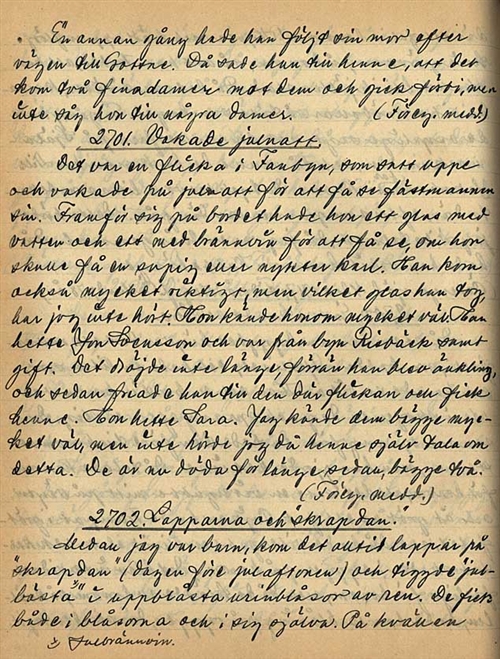 En annan gång hade han följt sin mor efter
vägen till Gottne. Då sade han till henne, att det
kom två fina damer mot dem och gick förbi, men
inte såg hon till några damer. (Föreg. medd.)
2701. Vakade julnatt.
Det var en flicka i Fanbyn, som satt uppe
och vakade på julnatt för att få se fästmannen
sin. Framför sig på bordet hade hon ett glas med
vatten och ett med brännvin för att få se, om hon
skulle få en supig eller nykter karl. Han kom
också mycket riktigt, men vilket glas han tog
har jag inte hört. Hon kände honom mycket väl. Han
hette Jon Svensson och var från byn Risbäck samt
gift. Det dröjde inte länge, förrän han blev änkling,
och sedan friade han till den där flickan och fick
henne. Hon hette Sara. Jag kände dem bägge myc-
ket väl, men inte hörde jag då henne själv tala om
detta. De är nu döda för länge sedan, bägge två.
(Föreg. medd.)
2702. Lapparna och "skrapdan."
Medan jag var barn, kom det alltid lappar på
"skrapdan" (dagen före julaftonen) och tiggde "jul-
bästa" 1) i uppblåsta urinblåsor av ren. De fick
både i blåsorna och i sig själva. På kvällen,
1) Julbrännvin.